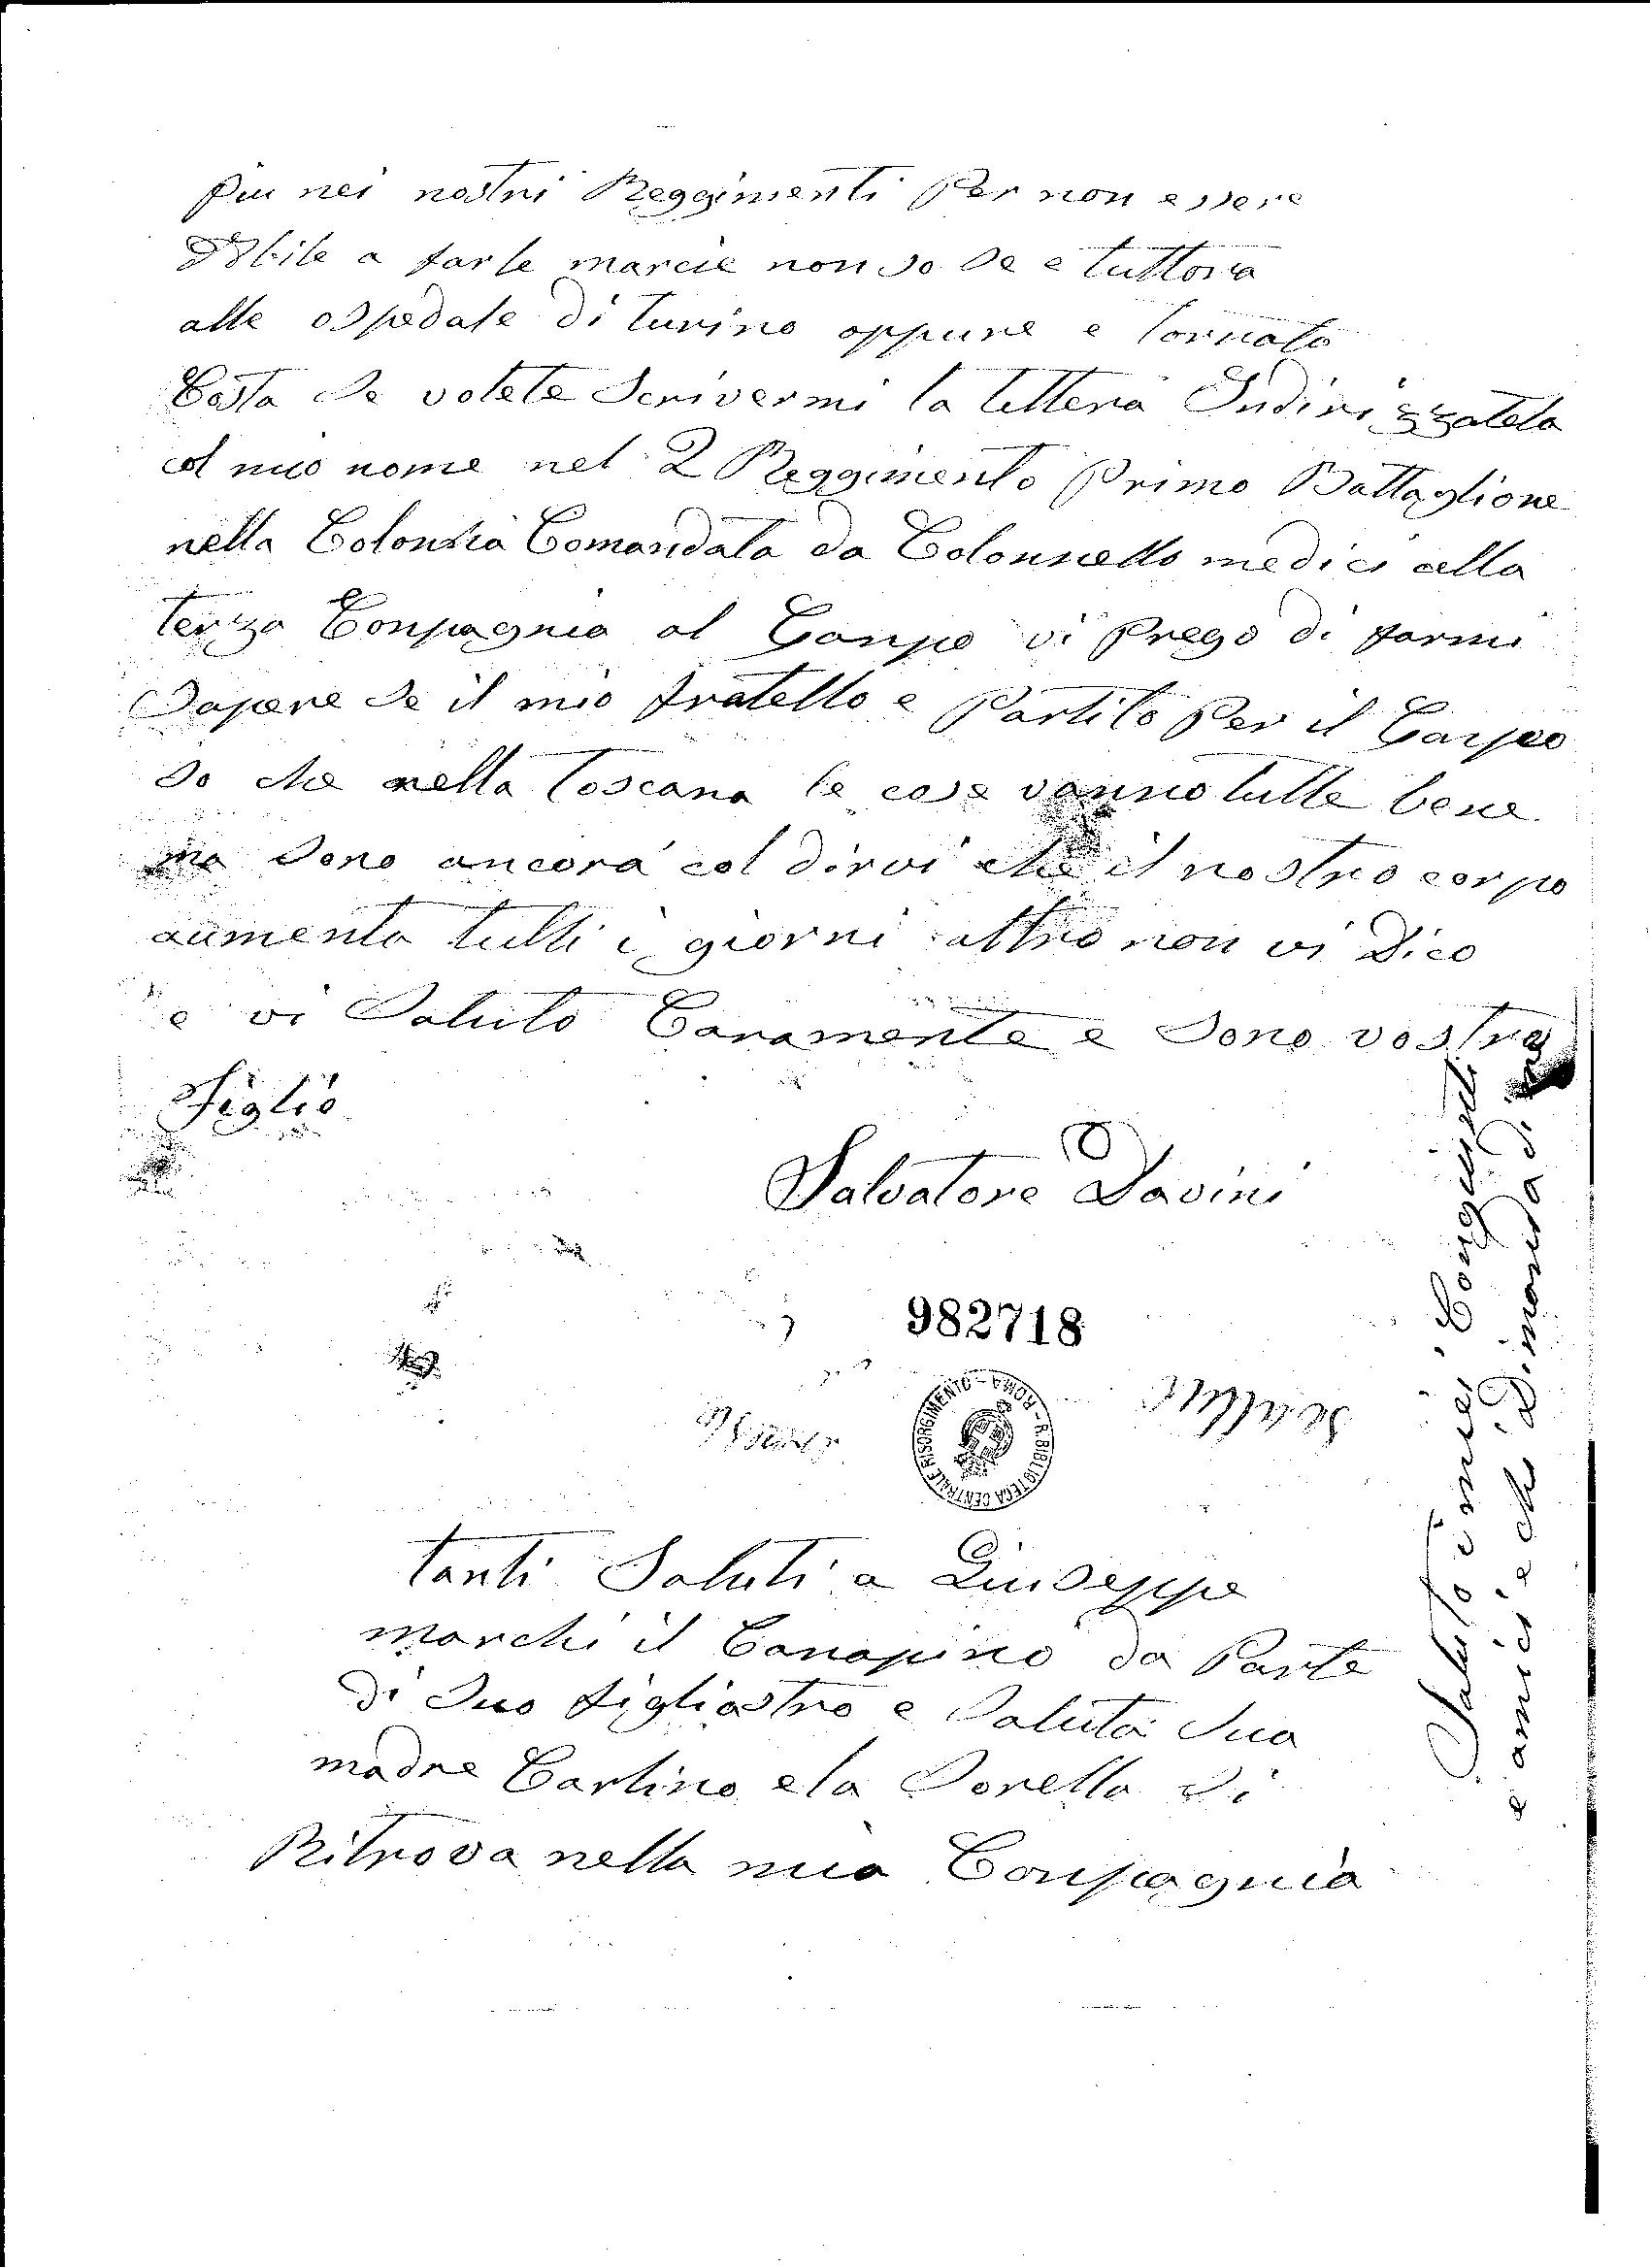 piu nei nostri Reggimenti Per non essere
a far le marcie non so se e tuttora
alle ospedale di turino oppure e tornato
Costa se volete scrivermi la lettera Indirizzatela
col mio nome nel 2 Reggimento Primo Battaglione
nella Colonna Comandata da Colonnello medici alla
terza Conpagnia al Canpo vi Prego di farmi
sapere se il mio fratello e Partito Per il Canpo
so che nella toscana le cose vanno tutte bene
ma sono ancora col dirvi che il nostro corpo
aumenta tutti i giorni altro non vi Dico
e vi saluto Caramente e sono vostro
Figlio
Salvatore Davini
982718
R. BIBLIOTECA CENTRALE RISORGIMENTO - ROMA -
tanti Saluti a Giuseppe
marchi il Canapino da Parte
di suo figliastro e saluta sua
madre Carlino e la sorella si
Ritrova nella mia Conpagnia
Saluto i miei Congiunti
e amici e chi Dimanda di